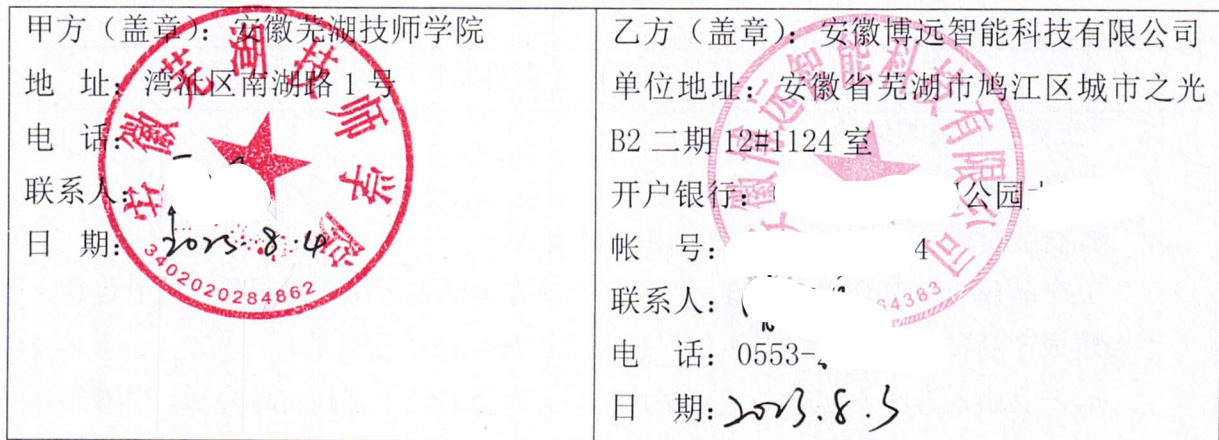 甲方（盖章）：安徽芜湖技师学院
地 址：湾沚区南湖路1号
电 话：
联系人：
日 期：2023.8.4
安徽芜湖技师学院
3402020284862
乙方（盖章）：安徽博远智能科技有限公司
单位地址：安徽省芜湖市鸠江区城市之光
B2二期12#1124室
开户银行：
公园
帐 号：
4
联系人：
电 话：0553-
日 期：2023.8.5
安徽博远智能科技有限公司
64383